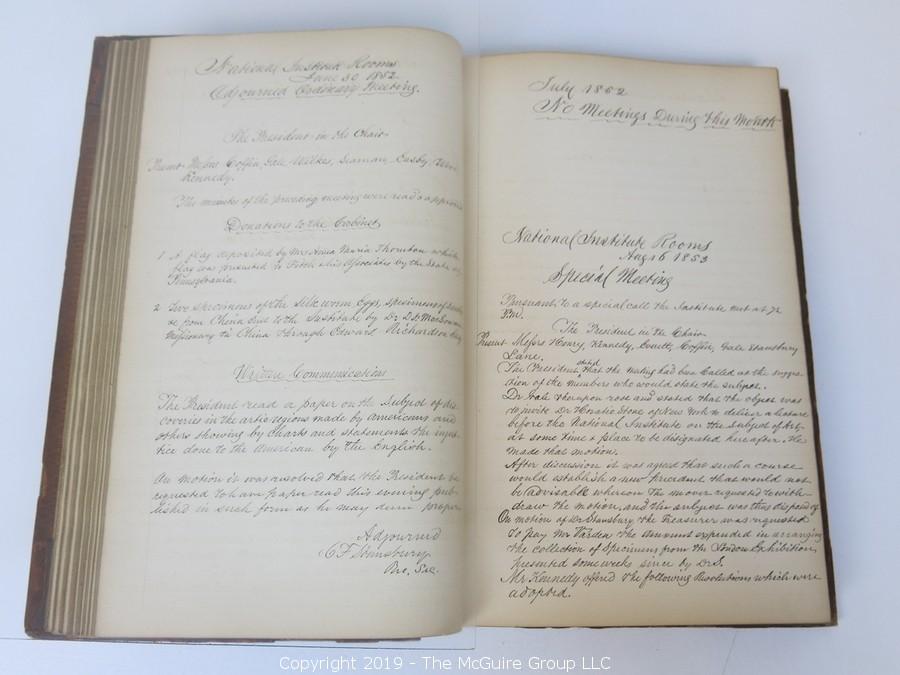 National Institute Rooms
June 30 1852
Adjourned Ordinary Meeting.
The President in the Chair
Present Messrs Coffin, Gale Wilkes, Seaman, Easby,
Kennedy.
The minutes of the preceding meeting were read & approved
Donations to the Cabinet
1 A flag deposited by Mrs Anna Maria Thornton which
flag was presented to Fitch & his Associates by the State of
Pennsylvania.
2 Five specimens of the silk worm Eggs, specimens of
from China sent to the Institute by Dr D.J. MacGowan
Missionary in China through Edward Richardson Esq
Written Communications
The President read a paper on the Subject of dis
coveries in the artic regions made by americans and
others showing by Charts and statements the injus
tice done to the American by the English.
On motion it was resolved that the President be
requested to have paper read this evening pub
lished in such form as he may deem proper
Adjourned
C F Stansbury
Rec. Sec.
July 1852
No Meetings During this Month
National Institute Rooms
Aug 16 1853
Special Meeting
Pursuant to a special call the Institute met at 7½
P.M.
The President in the Chair
Present Messrs Henry, Kennedy, Everett, Coffin, Gale Stansbury
Lane.
The President stated that the meeting had been called at the sugges
tion of the members who would state the subject.
Dr Gale thereupon rose and stated that the object was
to invite Dr Horatio Stone of New York to deliver a lecture
before the National Institute on the Subject of Art-
at some time & place to be designated hereafter. He
made that motion.
After discussion it was agreed that such a course
would establish a new precedent that would not
be advisable whereon the mover requested to with-
draw the motion, and the subject was thus disposed of
On motion of Dr Stansbury the Treasurer was requested
to pay Mr Varden the amount expended in arranging
the collection of Specimens from the London Exhibition,
presented some weeks since by Dr S.
Mr Kennedy offered the following Resolutions which were
adopted.
Copyright 2019 - The McGuire Group LLC